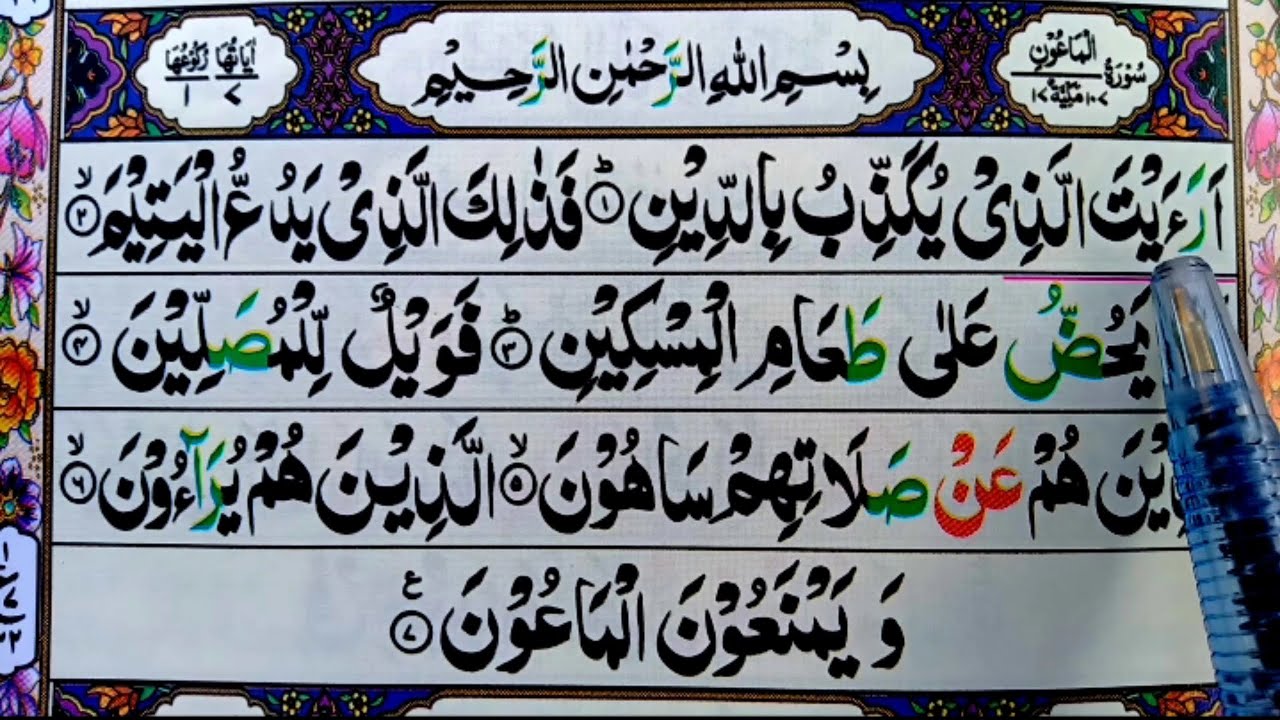 سُوْرَةُ الْمَاعُوْنِ مَكِّيَّةٌ ١٠٧ ١٧
بِسْمِ اللهِ الرَّحْمٰنِ الرَّحِيْمِ
اٰيَاتُهَا ٧ رُكُوْعُهَا ١
اَرَءَيْتَ الَّذِىْ يُكَذِّبُ بِالدِّيْنِ ؕ ﴿١﴾ فَذٰلِكَ الَّذِىْ يَدُعُّ الْيَتِيْمَ ۙ ﴿٢﴾
يَحُضُّ عَلٰى طَعَامِ الْمِسْكِيْنِ ؕ ﴿٣﴾ فَوَيْلٌ لِّلْمُصَلِّيْنَ ۙ ﴿٤﴾
هُمْ عَنْ صَلَاتِهِمْ سَاهُوْنَ ۙ ﴿٥﴾ الَّذِيْنَ هُمْ يُرَآءُوْنَ ۙ ﴿٦﴾
وَ يَمْنَعُوْنَ الْمَاعُوْنَ ﴿٧﴾ ع